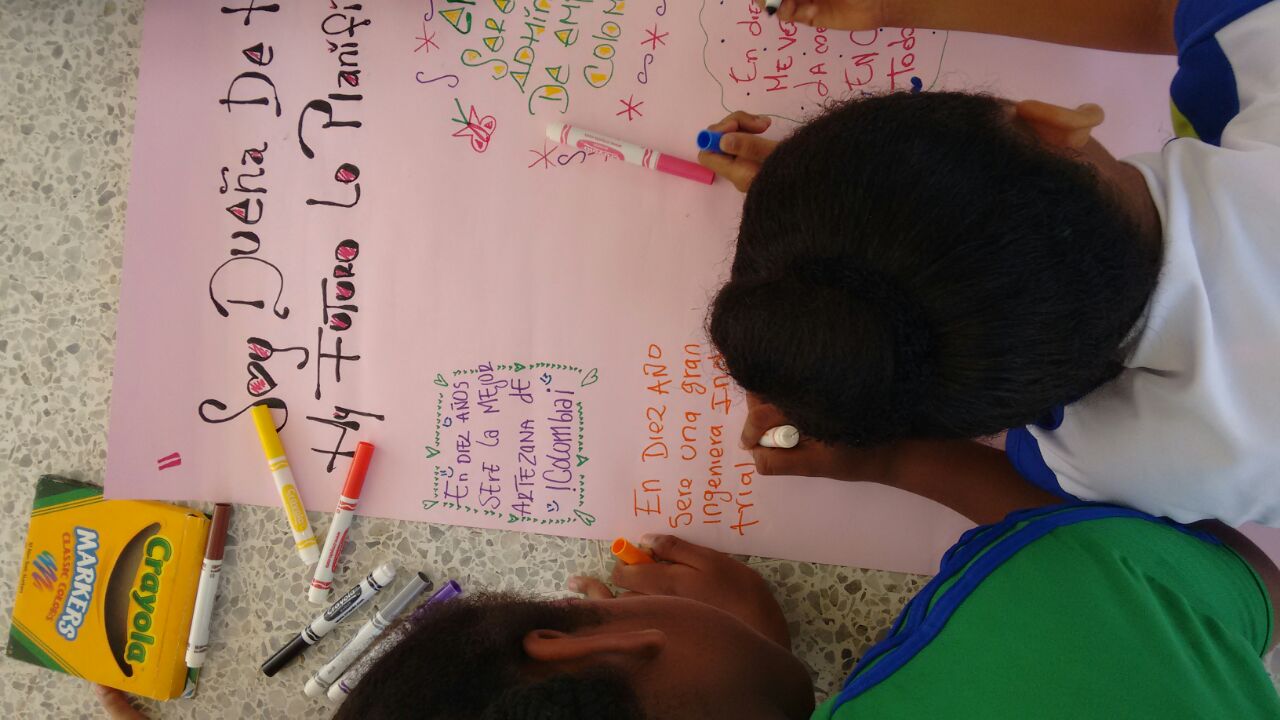 Crayola
MARKERS
CLASSIC COLORS
Soy DUEña De
My FUTURO Lo Planifi
En DIEZ AÑOS
SERE la MEJOR
ARTEZANA dE
!Colombia¡
En DIEZ AÑO
Sere una gran
Ingeniera Ind
trial
SERE
ADMIN
DE EM
COLOM
En diez
ME VE
LA ME
EN C
Todo